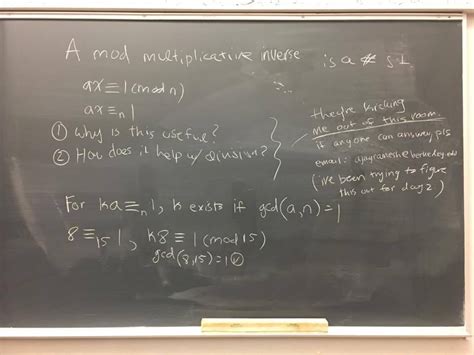 A mod multiplicative inverse is a # s.t.
ax ≡ 1 (mod n)
ax ≡ₙ 1
① Why is this useful?
② How does it help w/ division?
they're kicking
me out of this room
if anyone can answer, pls
email: @berkeley.edu
(i've been trying to figure
this out for days)
For ka ≡ₙ 1, k exists if gcd(a,n) = 1
8 ≡₁₅ 1, k8 ≡ 1 (mod 15)
gcd(8,15) = 1 ✓